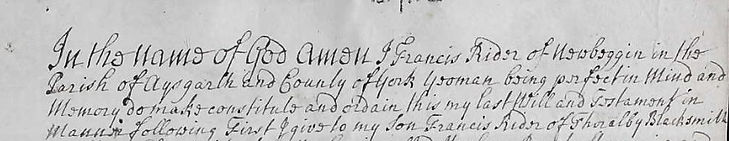 In the Name of God Amen I Francis Rider of Newbeggin in the
Parish of Aysgarth and County of York Yeoman being perfect in Mind and
Memory do make constitute and ordain this my last Will and Testament in
Manner following First I give to my Son Francis Rider of Thoralby Blacksmith